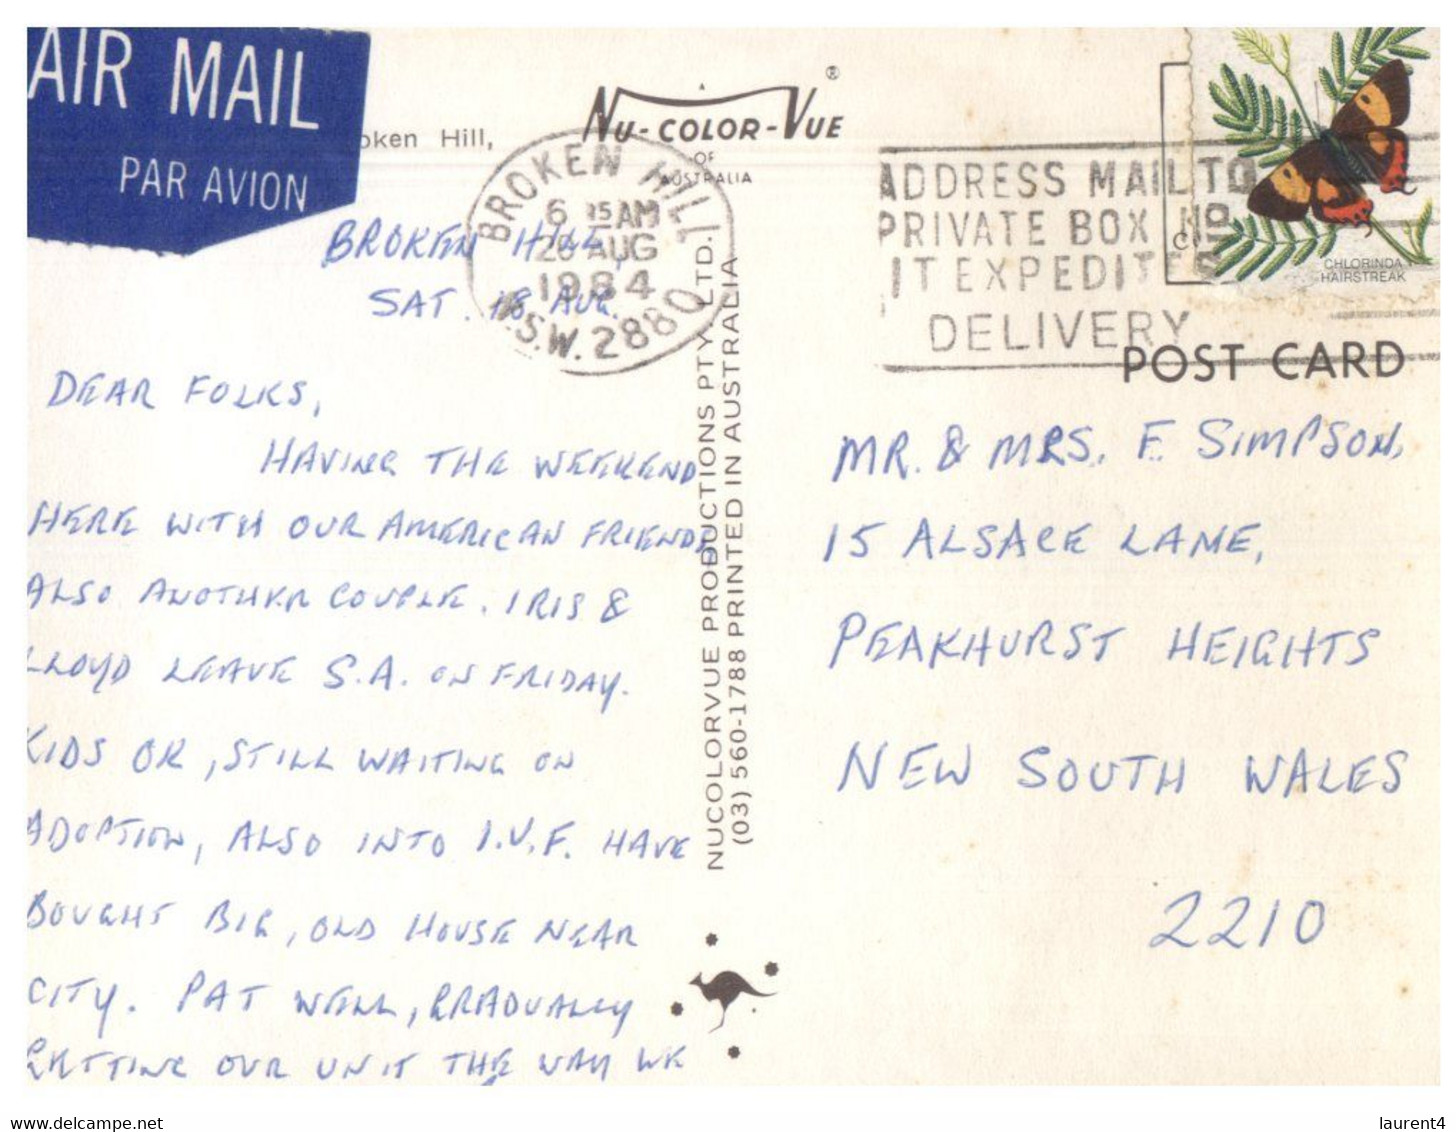 AIR MAIL
PAR AVION
oken Hill,
A
NU-COLOR-VUE ®
OF
AUSTRALIA
BROKEN HILL
6 15 AM
20 AUG
1984
N.S.W. 2880
ADDRESS MAIL TO
PRIVATE BOX NO
IT EXPEDITES
DELIVERY
CHLORINDA
HAIRSTREAK
POST CARD
BROKEN HILL,
SAT. 18 AUG.
DEAR FOLKS,
HAVING THE WEEKEND
HERE WITH OUR AMERICAN FRIENDS
ALSO ANOTHER COUPLE. IRIS &
LLOYD LEAVE S.A. ON FRIDAY.
KIDS OK, STILL WAITING ON
ADOPTION, ALSO INTO I.V.F. HAVE
BOUGHT BIG, OLD HOUSE NEAR
CITY. PAT WELL, GRADUALLY
GETTING OUR UNIT THE WAY WE
NUCOLORVUE PRODUCTIONS PTY. LTD.
(03) 560-1788 PRINTED IN AUSTRALIA
MR. & MRS. F. SIMPSON,
15 ALSACE LANE,
PEAKHURST HEIGHTS
NEW SOUTH WALES
2210
www.delcampe.net
laurent4